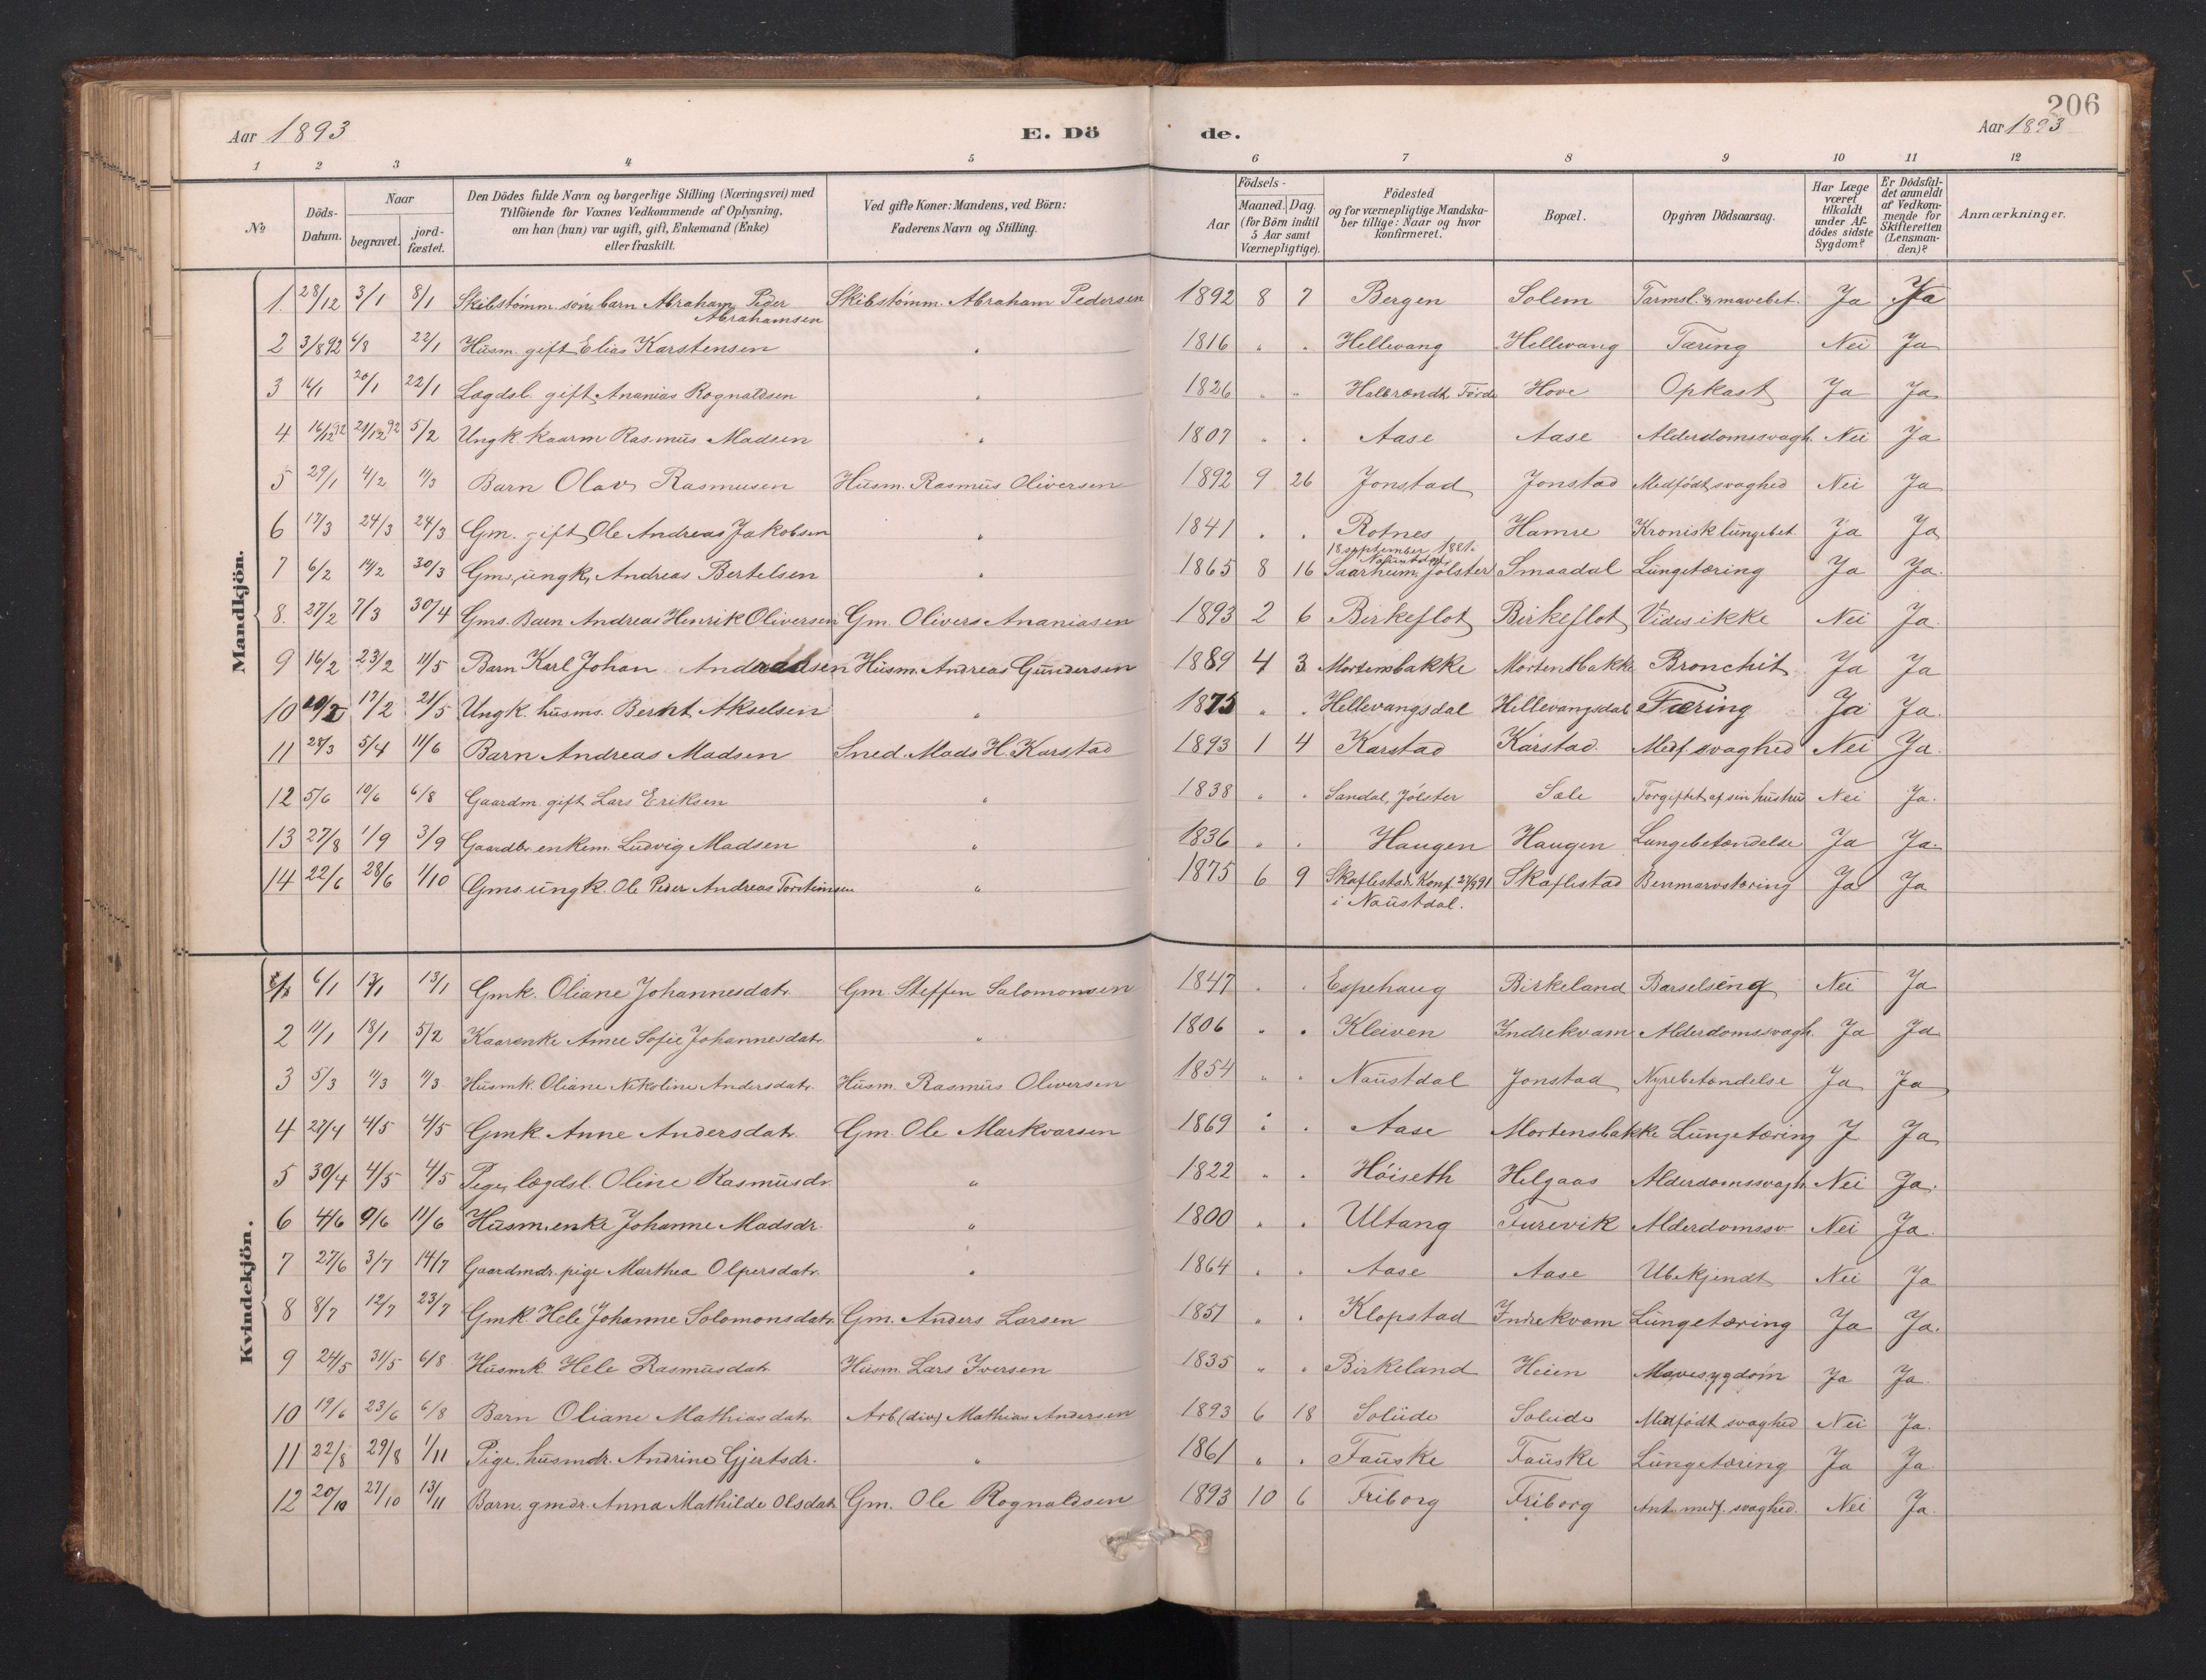 206
Aar 1893
E. Dö
de.
Aar 1893
1 2 3 4 5 6 7 8 9 10 11 12
No
Döds-Datum.
Naar
begravet.
jord-fæstet.
Den Dödes fulde Navn og borgerlige Stilling (Næringsvei) med
Tilföiende for Voxnes Vedkommende af Oplysning,
om han (hun) var ugift, gift, Enkemand (Enke)
eller fraskilt.
Ved gifte Koner: Mandens, ved Börn:
Faderens Navn og Stilling.
Födsels-
Aar
Maaned. Dag.
(for Börn indtil
5 Aar samt
Værnepligtige).
Födested
og for værnepligtige Mandska-
ber tillige: Naar og hvor
konfirmeret.
Bopæl.
Opgiven Dödsaarsag.
Har Læge
været
tilkaldt
under Af-
dödes sidste
Sygdom?
Er Dödsfal-
det anmeldt
af Vedkom-
mende for
Skifteretten
(Lensman-
den)?
Anmærkninger.
Mandkjön.
1. 28/12 3/1 8/1 Skibstömm. sön, barn Abraham Peder Skibstömm. Abraham Pedersen 1892 8 7 Bergen Solem Tarmsl. & mavebet. Ja Ja
Abrahamsen
2 3/8 92 6/8 22/1 Husm. gift Elias Karstensen " 1816 " " Hellevang Hellevang Tæring Nei Ja
3 16/1 20/1 22/1 Lægdsl. gift Ananias Rognaldsen " 1826 " " Halbrændt, Förde Hove Opkast Ja Ja
4 16/12 92 21/12 92 5/2 Ungk. kaarm Rasmus Madsen " 1807 " " Aase Aase Alderdomssvagh. Nei Ja
5 29/1 4/2 11/3 Barn Olav Rasmusen Husm. Rasmus Oliversen 1892 9 26 Jonstad Jonstad Medfödt svaghed Nei Ja
6 17/3 24/3 24/3 Gm. gift Ole Andreas Jakobsen " 1841 " " Rotnes Hamre Kronisk lungebet. Ja Ja
18 september 1881.
Naustdal
7 6/2 14/2 30/3 Gms, ungk, Andreas Bertelsen " 1865 8 16 Saarheim, Jölster Smaadal Lungetæring Ja Ja.
8. 27/2 7/3 30/4 Gms. Barn Andreas Henrik Oliversen Gm. Olivers Ananiasen 1893 2 6 Birkeflot Birkeflot Vides ikke Nei Ja.
9 16/2 23/2 11/5 Barn Karl Johan Andreassen Husm. Andreas Gundersen 1889 4 3 Mortensbakke Mortensbakke Bronchit Ja Ja
10 17/2 21/5 Ungk. husms. Bernt Akselsen " 1875 " " Hellevangsdal Hellevangsdal Tæring Ja Ja.
11 28/3 5/4 11/6 Barn Andreas Madsen Sned. Mads H. Karstad 1893 1 4 Karstad Karstad. Medf. svaghed Nei Ja.
12 5/6 10/6 6/8 Gaardm. gift Lars Eriksen " 1838 " " Sandal, Jölster Sale Forgiftet af sin hustru Nei Ja.
13 27/8 1/9 3/9 Gaardbr. enkem. Ludvig Madsen " 1836 " " Haugen Haugen Lungebetændelse Ja Ja.
14 22/6 28/6 1/10 Gms. ungk. Ole Peder Andreas Torsteinsen " 1875 6 9 Skaflestad. Konf. 27/9 91 Skaflestad Benmarvstæring Ja Ja
i Naustdal.
Kvindekjön.
6/1 13/1 13/1 Gmk. Oliane Johannesdatr. Gm. Steffen Salomonsen 1847 " " Espehaug Birkeland Barselseng Nei Ja
2 11/1 18/1 5/2 Kaarenke Anne Sofie Johannesdatr. " 1806 " " Kleiven Indrekvam Alderdomssvagh. Ja Ja
3 5/3 11/3 11/3 Husmk. Oliane Nikoline Andersdatr. Husm. Rasmus Oliversen 1854 " " Naustdal Jonstad Nyrebetændelse Ja Ja
4 27/4 4/5 4/5 Gmk Anne Andersdatr. Gm. Ole Markvarsen 1869 " " Aase Mortensbakke Lungetæring J Ja
5 30/4 4/5 4/5 Pige, lægdsl. Oline Rasmusdr. " 1822 " " Höiseth Helgaas Alderdomssvagh. Nei Ja.
6 4/6 9/6 11/6 Husm. enke Johanne Madsdr " 1800 " " Ultang Furevik Alderdomssv. Nei Ja.
7 27/6 3/7 14/7 Gaardmdr. pige Marthea Olpersdatr. " 1864 " " Aase Aase Ubekjendt Nei Ja
8 8/7 12/7 23/7 Gmk. Hele Johanne Solomonsdatr. Gm. Anders Larsen 1851 " " Klopstad Indrekvam Lungetæring Ja Ja.
9 24/5 31/5 6/8 Husmk. Hele Rasmusdatr. Husm. Lars Iversen 1835 " " Birkeland Heien Mavesygdom Ja Ja.
10 19/6 23/6 6/8 Barn Oliane Mathiasdatr. Arb. (div) Mathias Andersen 1893 6 18 Solüde Solüde Medfödt svaghed Nei Ja.
11 22/8 29/8 1/11 Pige, husmdr. Andrine Gjertsdr. " 1861 " " Fauske Fauske Lungetæring Ja Ja.
12 20/10 27/10 13/11 Barn, gmdr. Anna Mathilde Olsdatr Gm. Ole Rognaldsen 1893 10 6 Friborg Friborg Ant. medf. svaghed. Nei Ja.